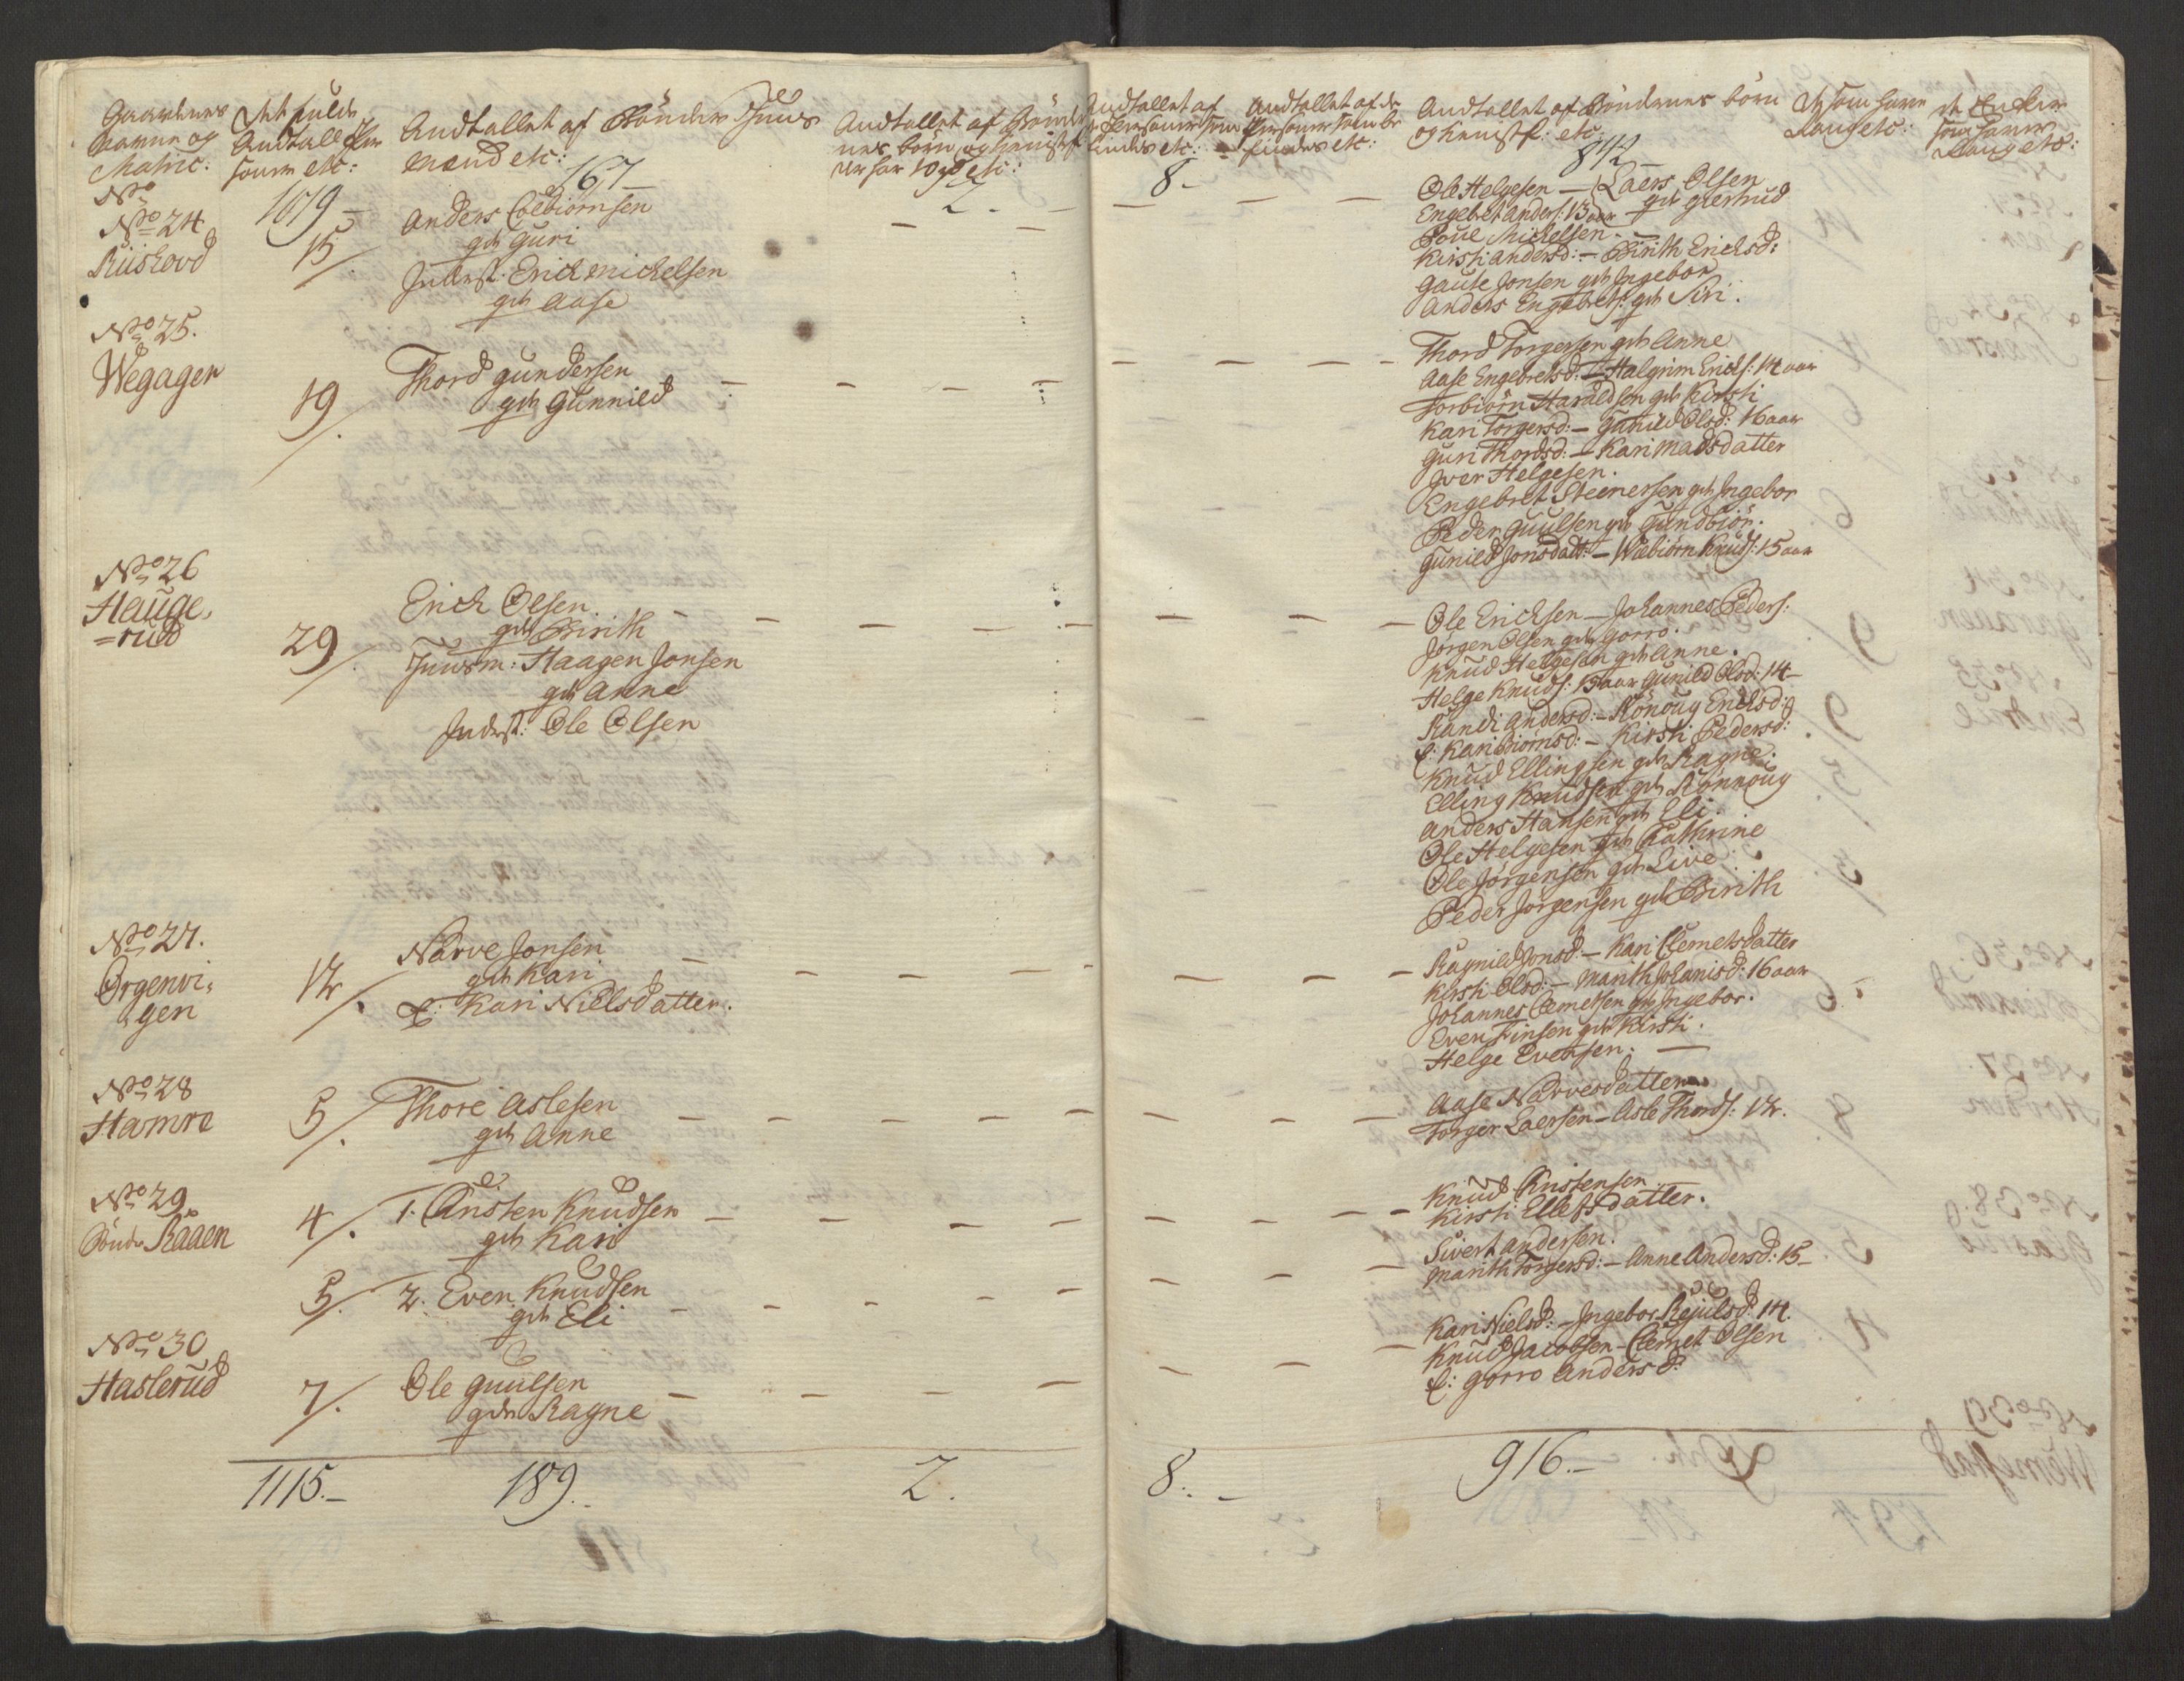 Gaardenes
Navne og
Matric:
No
Det fulde
Andtall Per
soner etc:
1019 -
Andtallet af Bönder Huus
mænd etc:
167 -
Andtallet af Bönder
nes börn og
etc:
2. -
Andtallet af
Personer som
etc:
8 -
Andtallet af de
Personer som be
findes etc:
Andtallet af Böndernes börn
og etc:
842 -
De som have
Laug etc:
de Encker
som have
Laug etc:
No 24
Riishovd
15/
Anders Colbiörnsen
gift Guri
Inderst: Erich Michelsen
gift Aase
Ole Helgesen - Laers Olsen
Engebret Anders: 13 aar gift Giertrud
Poue Michelsen. -
Kirsti Andersd: - Birith Ericksd:
Gaute Jonsen gift Ingebor
Anders Engebrets: gift Siri.
No 25.
Wegager
19/.
Thord Gundersen
gift Gunnild
Thord Torgersen gift Anne
Aase Engebretsd: - Halgrim Ericks: 14 aar
Torbiörn Haraldsen gift Kirsti
Kari Torgersd: - Gunild Olsd: 16 aar
Guri Thordsd: - Kari Madsdatter
Iver Helgesen.
Engebret Steenersen gift Ingebor
Peder Guulsen gift Gundbiör.
Gunild Jonsdatt: - Wiebiörn Knuds: 15 aar
No 26
Hauge,
=rud
29/.
Erich Olsen
gift Birith
Huusm: Haagen Jonsen
gift Anne
Inderst: Ole Olsen
Ole Ericksen - Johannes Peders:
Jörgen Olsen gift Gorro.
Knud Helgesen gift Anne.
Helge Knuds: 13 aar Gunild Olsd: 14 -
Randi Andersd: - Rönoug Ericksd:
E: Kari Biörnsd: - Kirsti Pedersd:
Knud Ellingsen gift Ragne.
Elling Knudsen gift Rönnoug
Anders Hansen gift Eli.
Ole Helgesen gift Cathrine
Ole Jörgensen gift Live
Peder Jörgensen gift Birith
No 27.
Örgenvi,
gen
12/.
Narve Jonsen
gift Kari
E: Kari Nielsdatter.
Ragnild Jonsd: - Kari Clemetsdatter
Kirsti Olsd: - Marith Johanisd: 16 aar
Johannes Clemetsen gift Ingebor.
Even Finsen gift Kirsti.
Helge Evensen. -
No 28
Hamre
5/.
Thore Aslesen
gift Anne
Aase Narvesdatter
Torger Laersen - Asle Thords: 12.
No 29.
Bönde Raaen
4/.
1. Cristen Knudsen
gift Kari
Knud Cristensen
Kirsti Ellefsdatter.
5/.
2. Even Knudsen
gift Eli
Sivert Andersen.
Marith Torgersd: - Anne Andersd: 15 -
No 30
Haslerud
7/.
Ole Guulsen
gift Ragne
Kari Nielsd: - Ingebor Kejulsd: 14.
Knud Jacobsen - Clemet Olsen
E: Gorro Andersd:
1115. -
189. -
2.
8. -
916. -